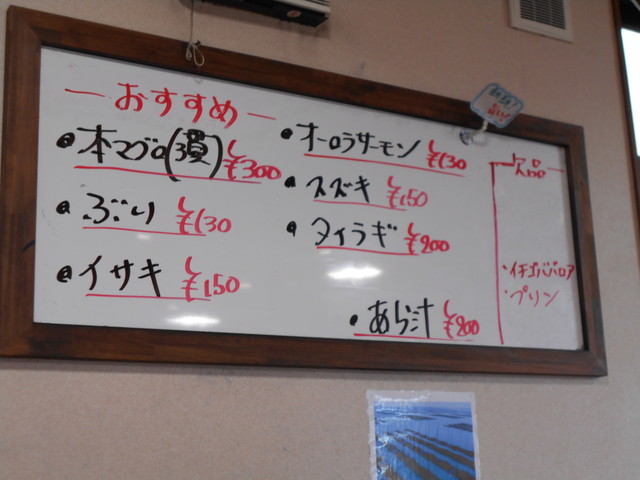 おすすめ
本マグロ ¥300
ぶり ¥130
イサキ ¥150
オーロラサーモン ¥130
スズキ ¥150
タイラギ ¥200
あら汁 ¥200
欠品
・イチゴババロア
・プリン